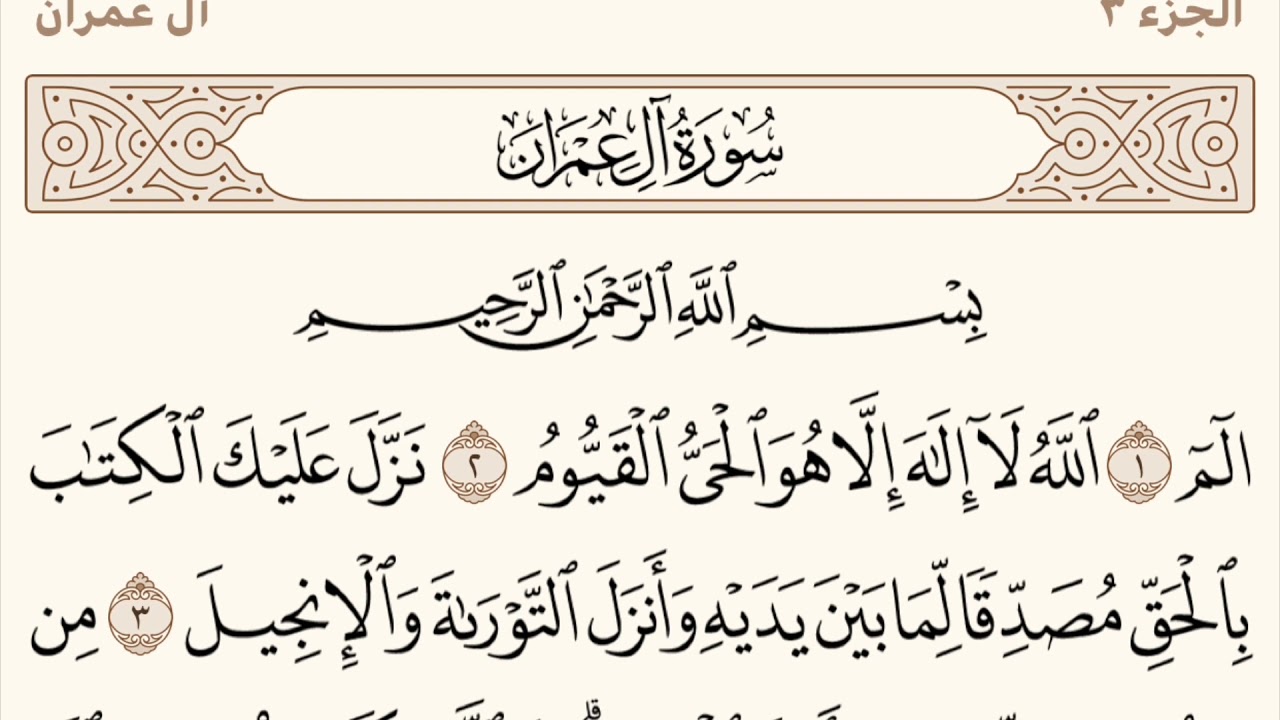 الجزء ٣
آل عمران
سُورَةُ آلِ عِمْرَانَ
بِسْمِ ٱللَّهِ ٱلرَّحْمَٰنِ ٱلرَّحِيمِ
الٓمٓ ١ ٱللَّهُ لَآ إِلَٰهَ إِلَّا هُوَ ٱلْحَىُّ ٱلْقَيُّومُ ٢ نَزَّلَ عَلَيْكَ ٱلْكِتَٰبَ
بِٱلْحَقِّ مُصَدِّقًا لِّمَا بَيْنَ يَدَيْهِ وَأَنزَلَ ٱلتَّوْرَىٰةَ وَٱلْإِنجِيلَ ٣ مِن